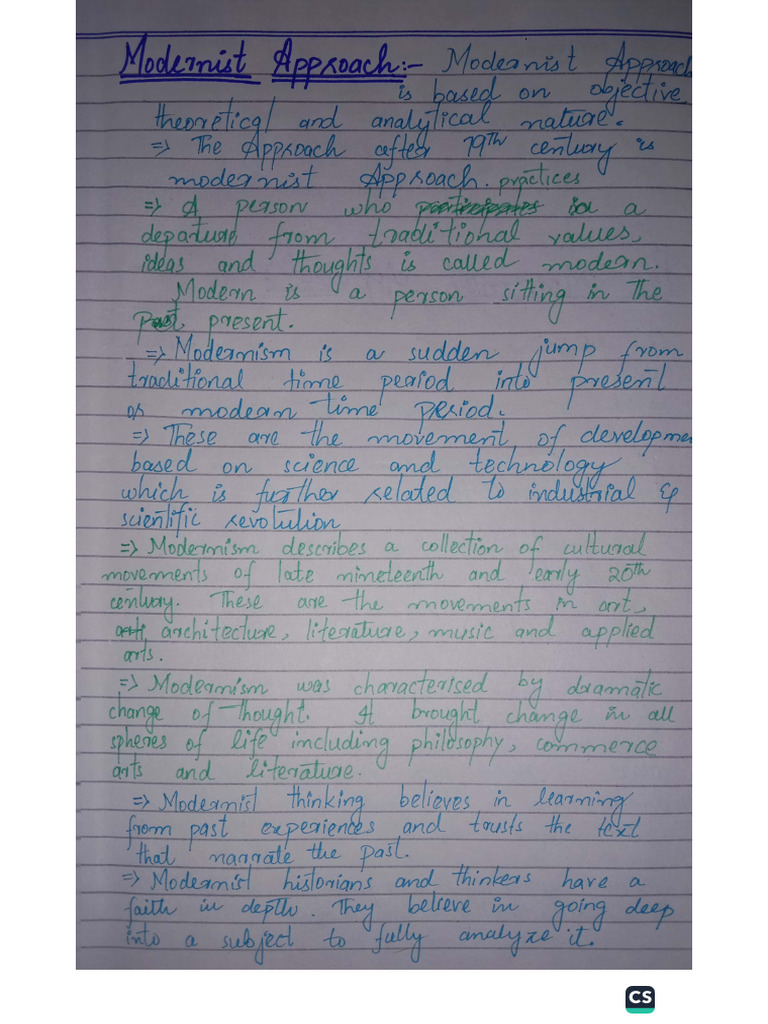 Modernist Approach:- Modernist Approach
is based on objective
theoretical and analytical nature.
=> The Approach after 19th century is
modernist Approach. practices
=> A person who participates in a
departure from traditional values,
ideas and thoughts is called modern.
Modern is a person sitting in the
Past, present.
=> Modernism is a sudden jump from
traditional time period into present
or modern time period.
=> These are the movement of developmen
based on science and technology
which is further related to industrial &
scientific revolution
=> Modernism describes a collection of cultural
movements of late nineteenth and early 20th
century. These are the movements in art,
art, architecture, literature, music and applied
arts.
=> Modernism was characterised by dramatic
change of thought. It brought change in all
spheres of life including philosophy, commerce
arts and literature.
=> Modernist thinking believes in learning
from past experiences and trusts the text
that narrate the past.
=> Modernist historians and thinkers have a
faith in depth. They believe in going deep
into a subject to fully analyze it.
CS